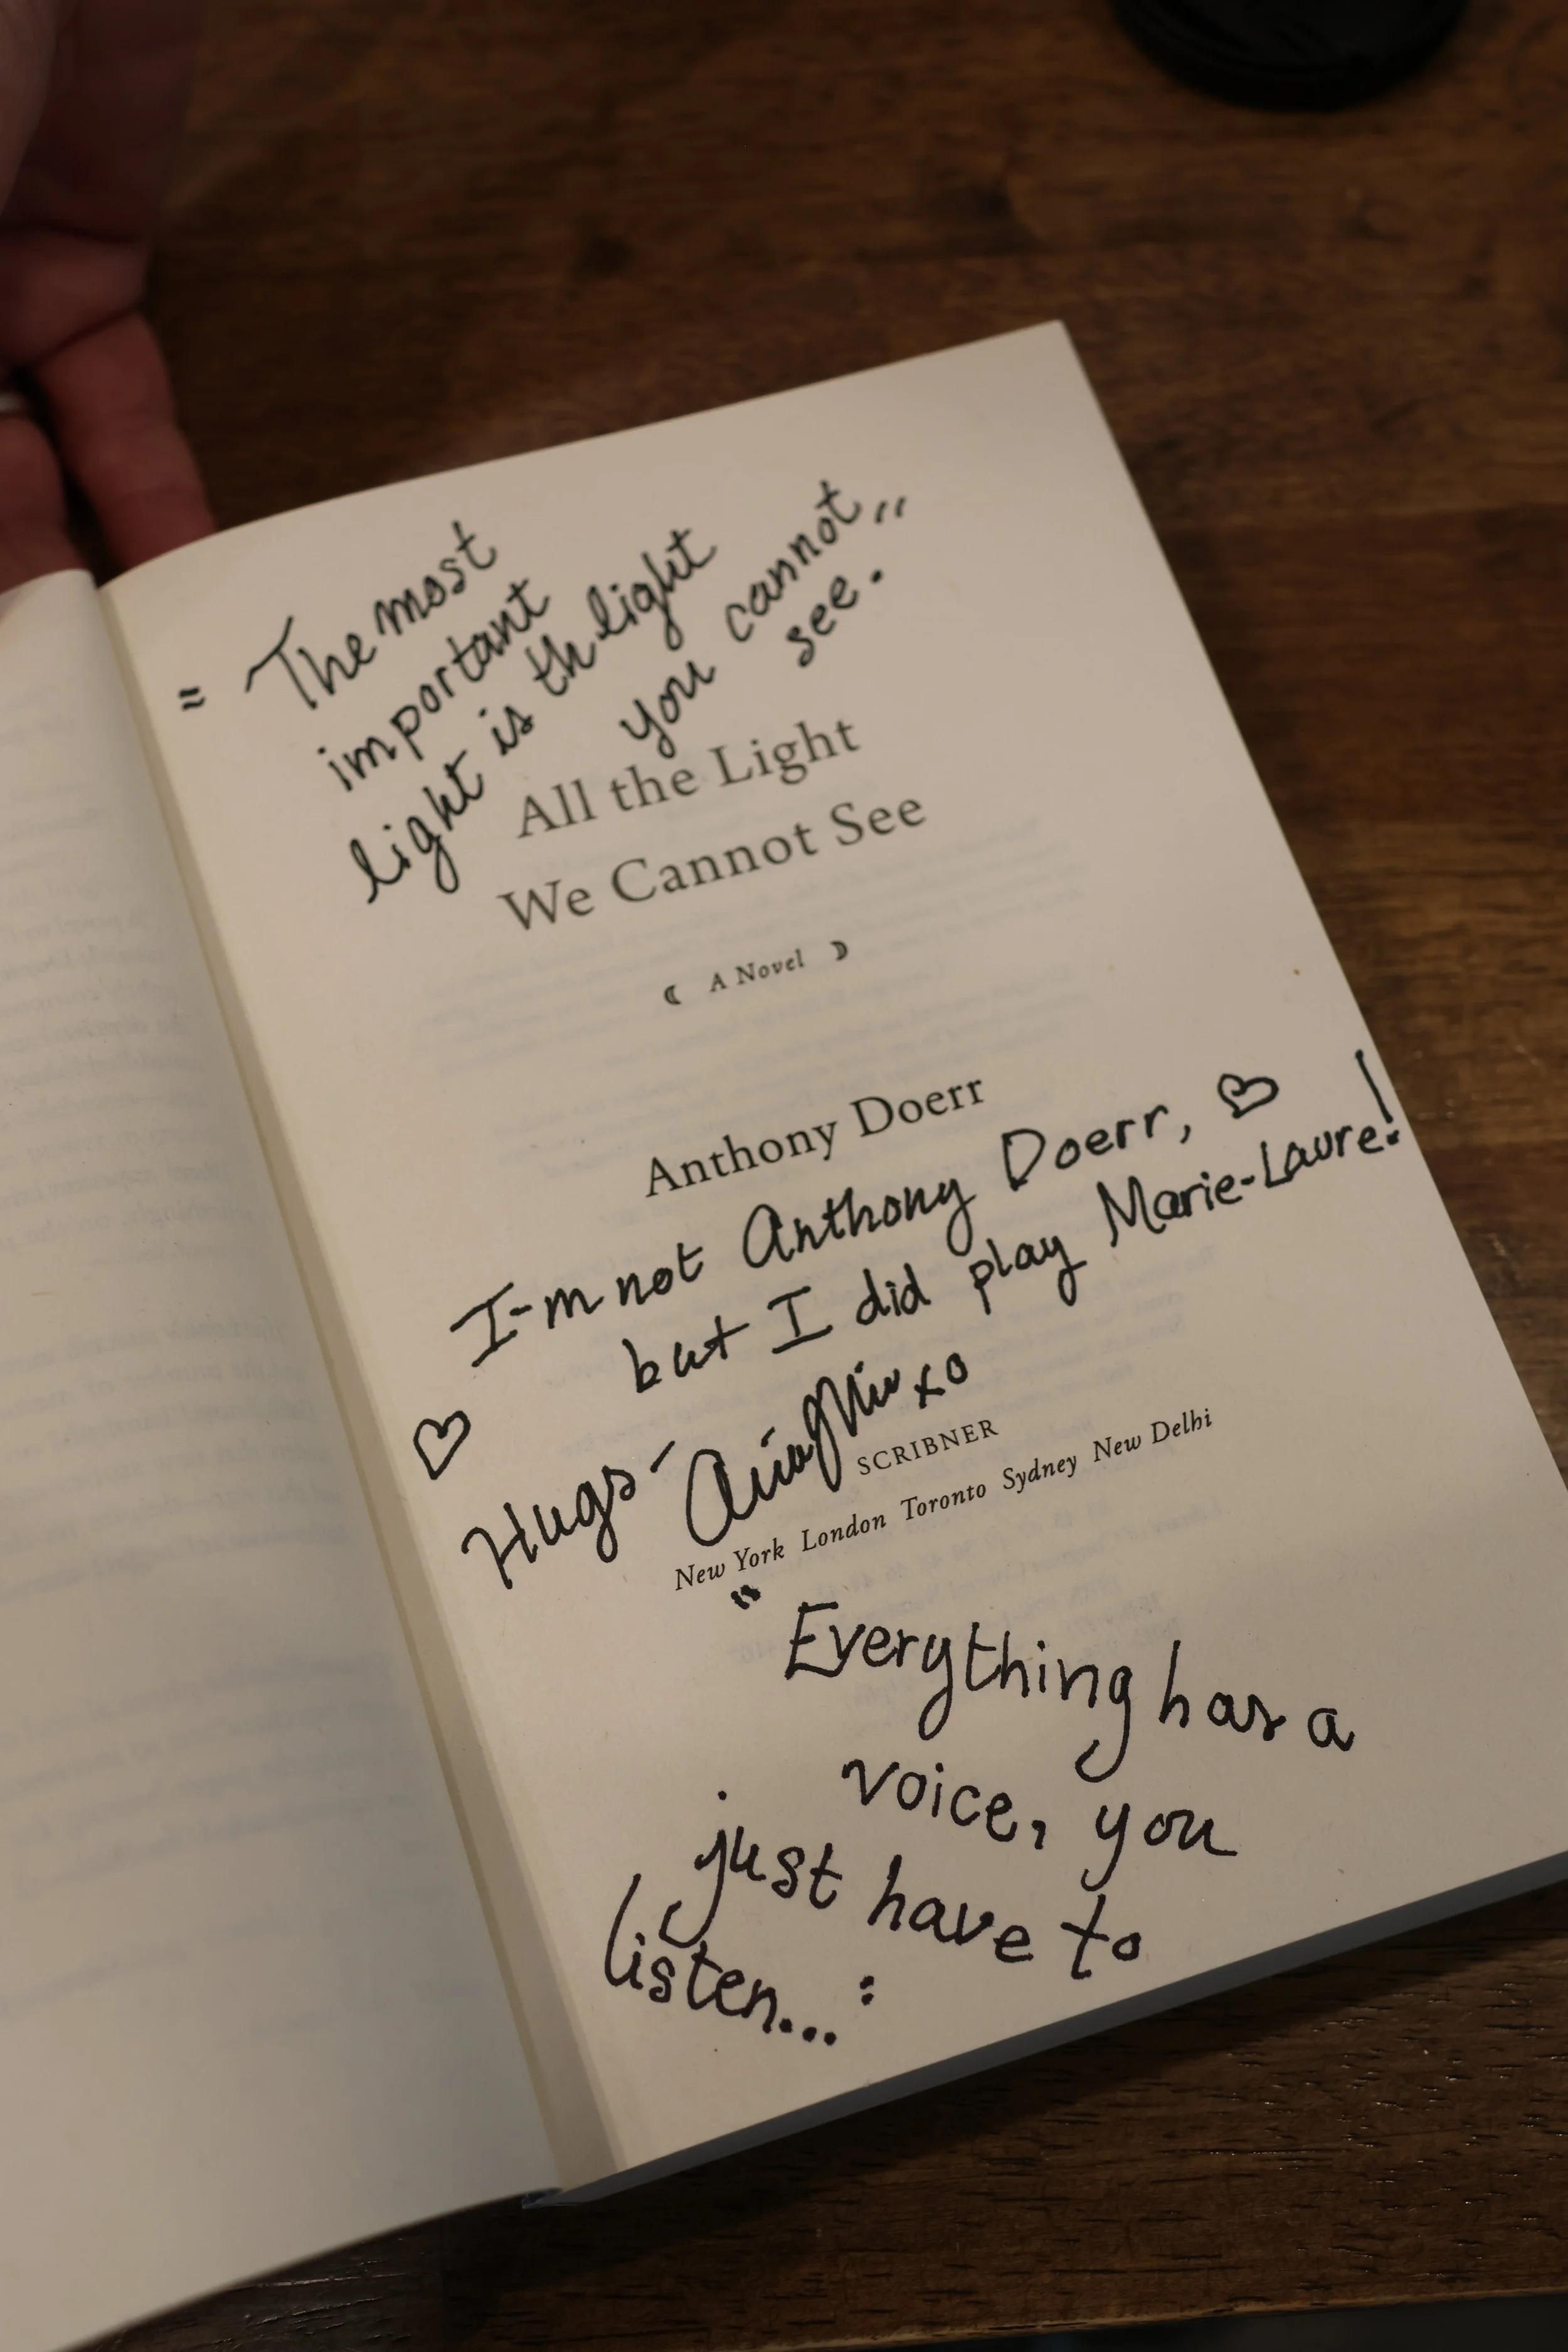 " The most
important
light is th light
you cannot "
see.
All the Light
We Cannot See
A Novel
Anthony Doerr
I-m not Anthony Doerr, ♡
but I did play Marie-Laure!
♡ Hugs- xo
SCRIBNER
New York London Toronto Sydney New Delhi
" Everything has a
voice, you
just have to
listen... :